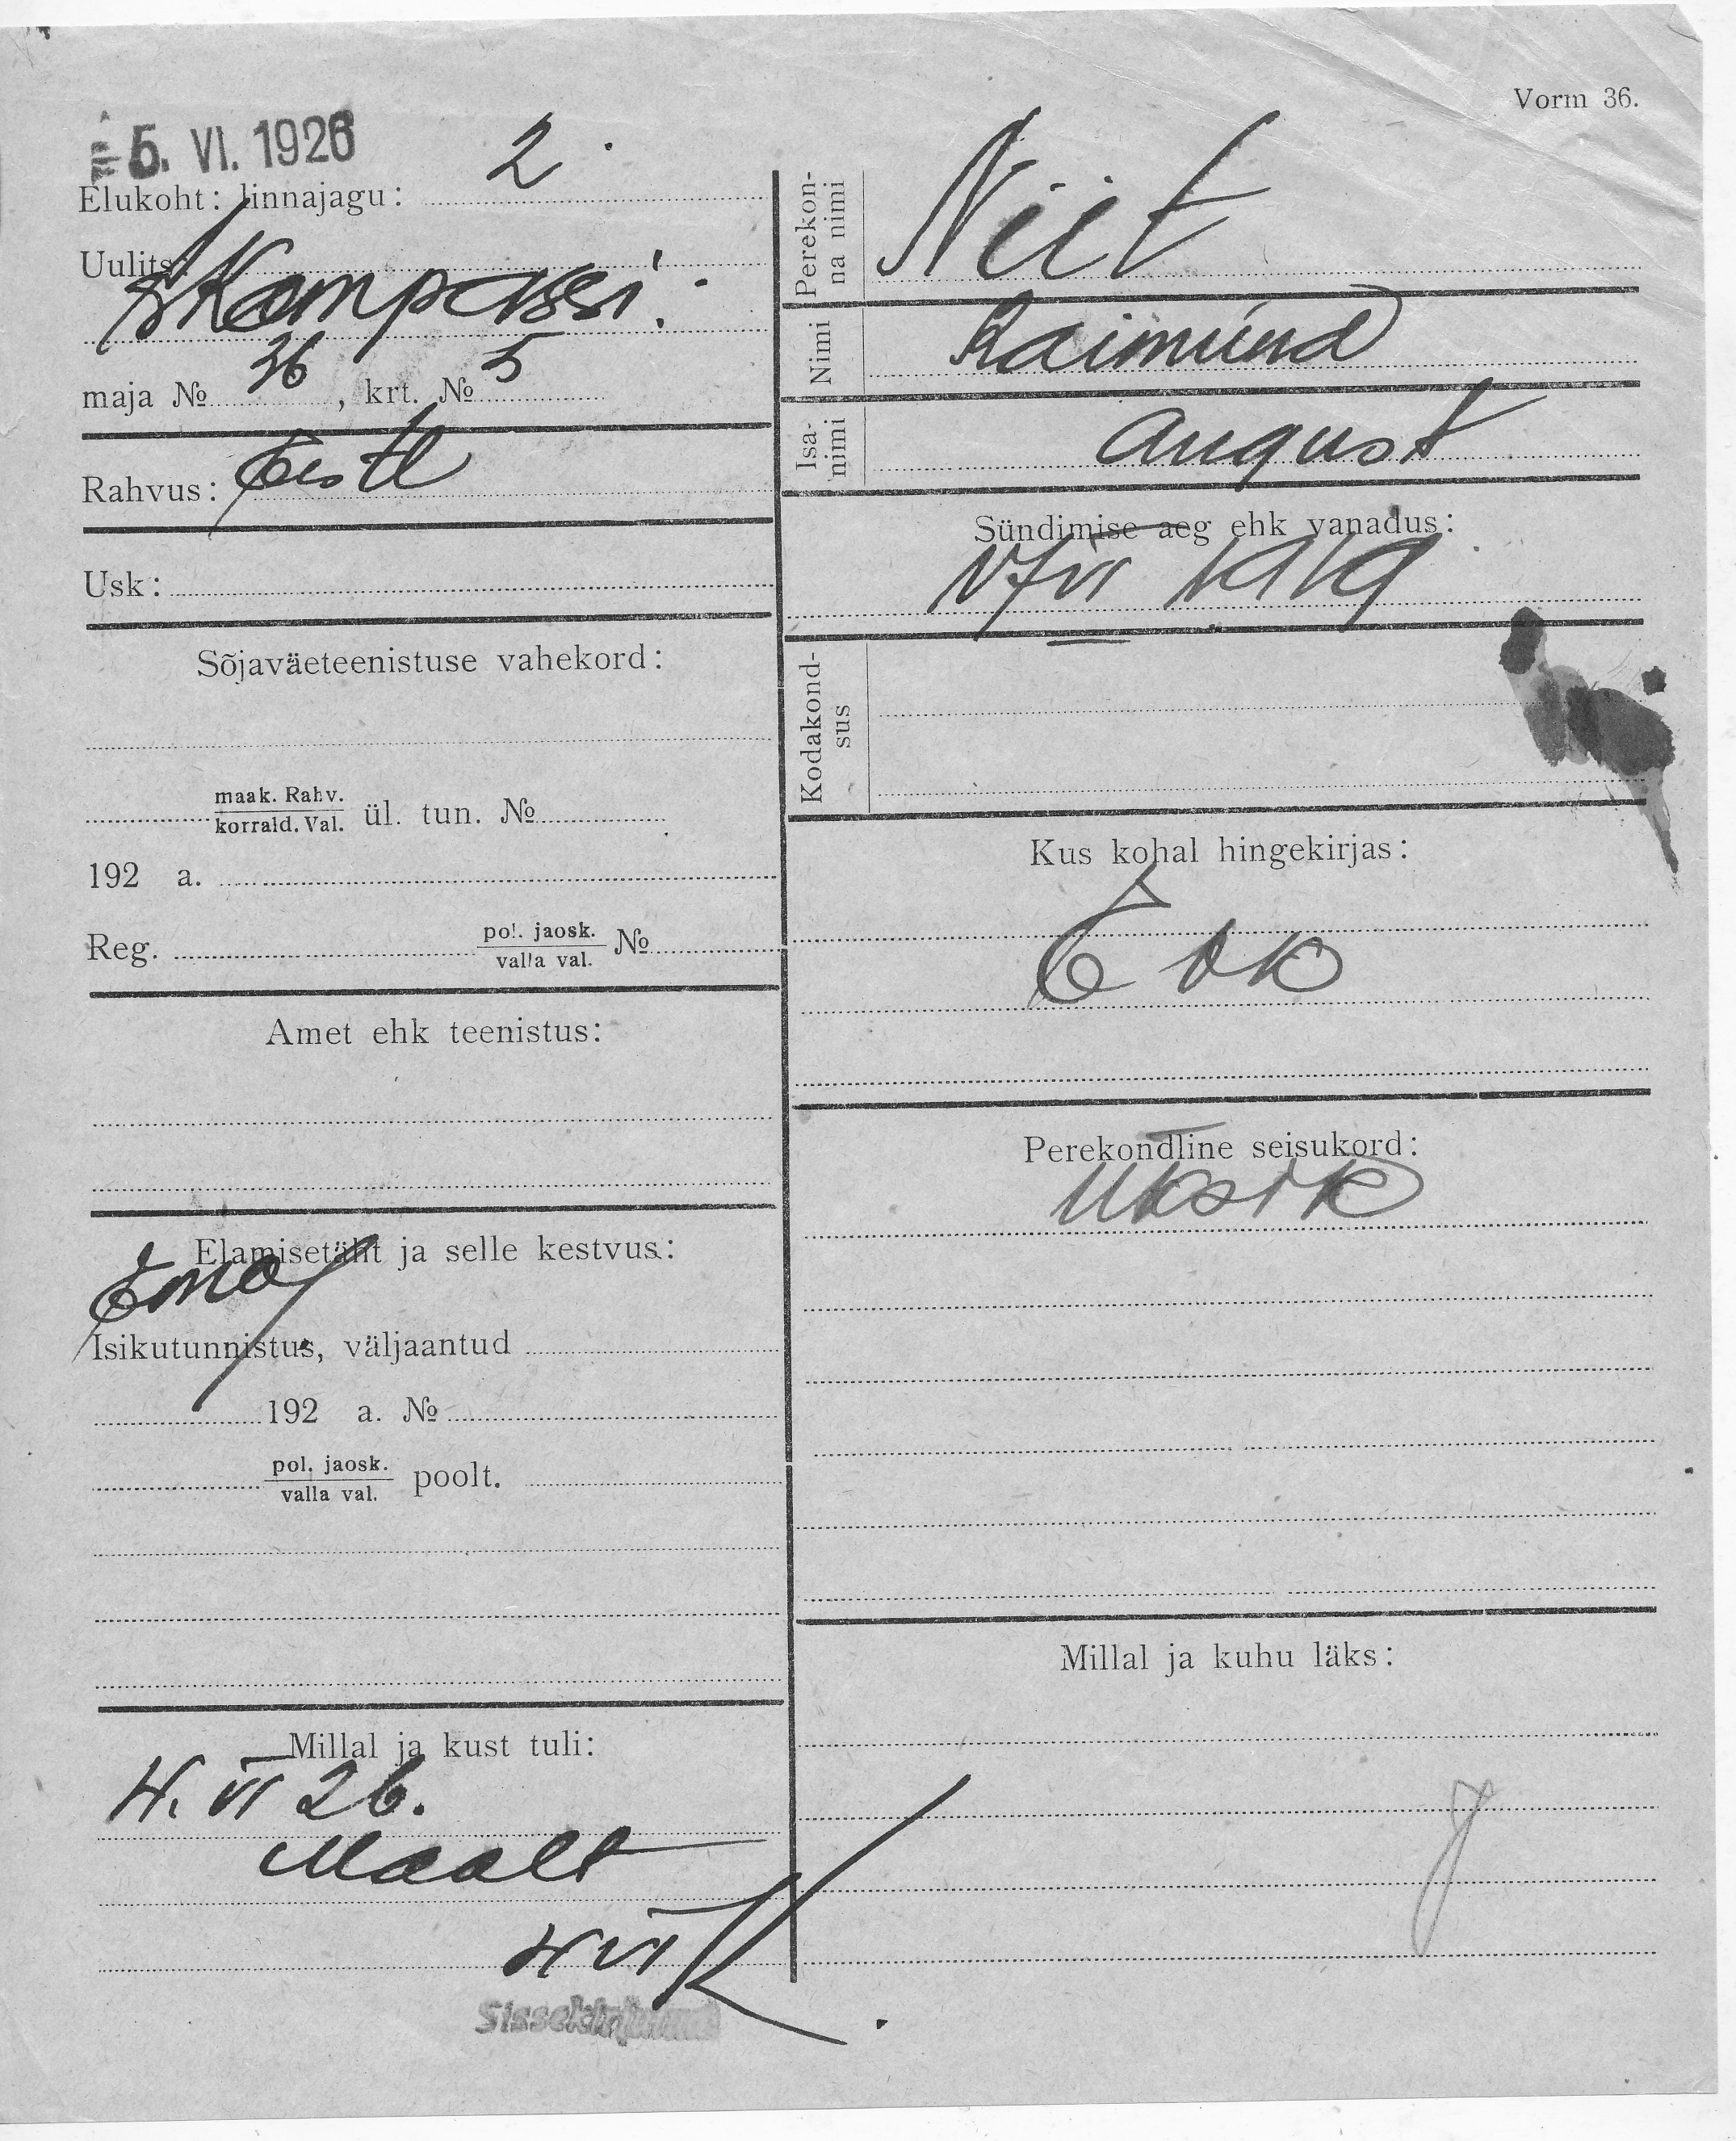 Vorm 36.
5. VI. 1926
Elukoht: linnajagu: 2.
Uulits:
Kompassi.
maja № 36, krt. № 5
Rahvus: Eesti
Usk:
Sõjaväeteenistuse vahekord:
maak. Rahv.
korrald. Val. ül. tun. №
192 a.
Reg. pol. jaosk.
valla val. №
Amet ehk teenistus:
Elamisetäht ja selle kestvus:
Ema
Isikutunnistus, väljaantud
192 a. №
pol. jaosk.
valla val. poolt.
Millal ja kust tuli:
4. VI 26.
Maalt
4 VI K
Sissekirjutatud
Perekon-
na nimi
Niit
Nimi
Raimund
Isa-
nimi
August
Sündimise aeg ehk vanadus:
VI 1919
Kodakond-
sus
Kus kohal hingekirjas:
Perekondline seisukord:
Üksik
Millal ja kuhu läks: